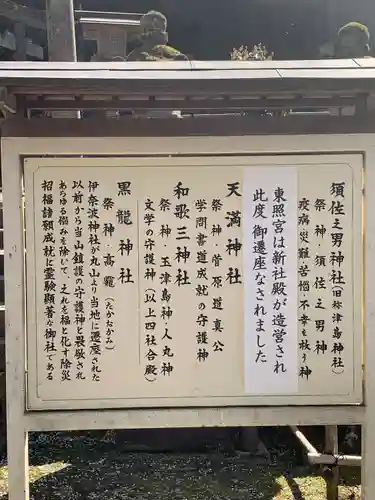 須佐之男神社(旧称津島神社)
祭神・須佐之男神
疫病・災難・苦悩・不幸を救う神
東照宮は新社殿が造営され
此度 御遷座なされました
天満神社
祭神・菅原道真公
学問書道成就の守護神
和歌三神社
祭神・玉津島神・人丸神
文学の守護神(以上四社合殿)
黒龍神社
祭神・高龗(たかおかみ)
伊奈波神社が丸山より当地に遷座された
以前から当山鎮護の神と畏敬され
あらゆる悩みを除いて、之れを福と化す除災
招福諸願成就に霊験顕著な御社である